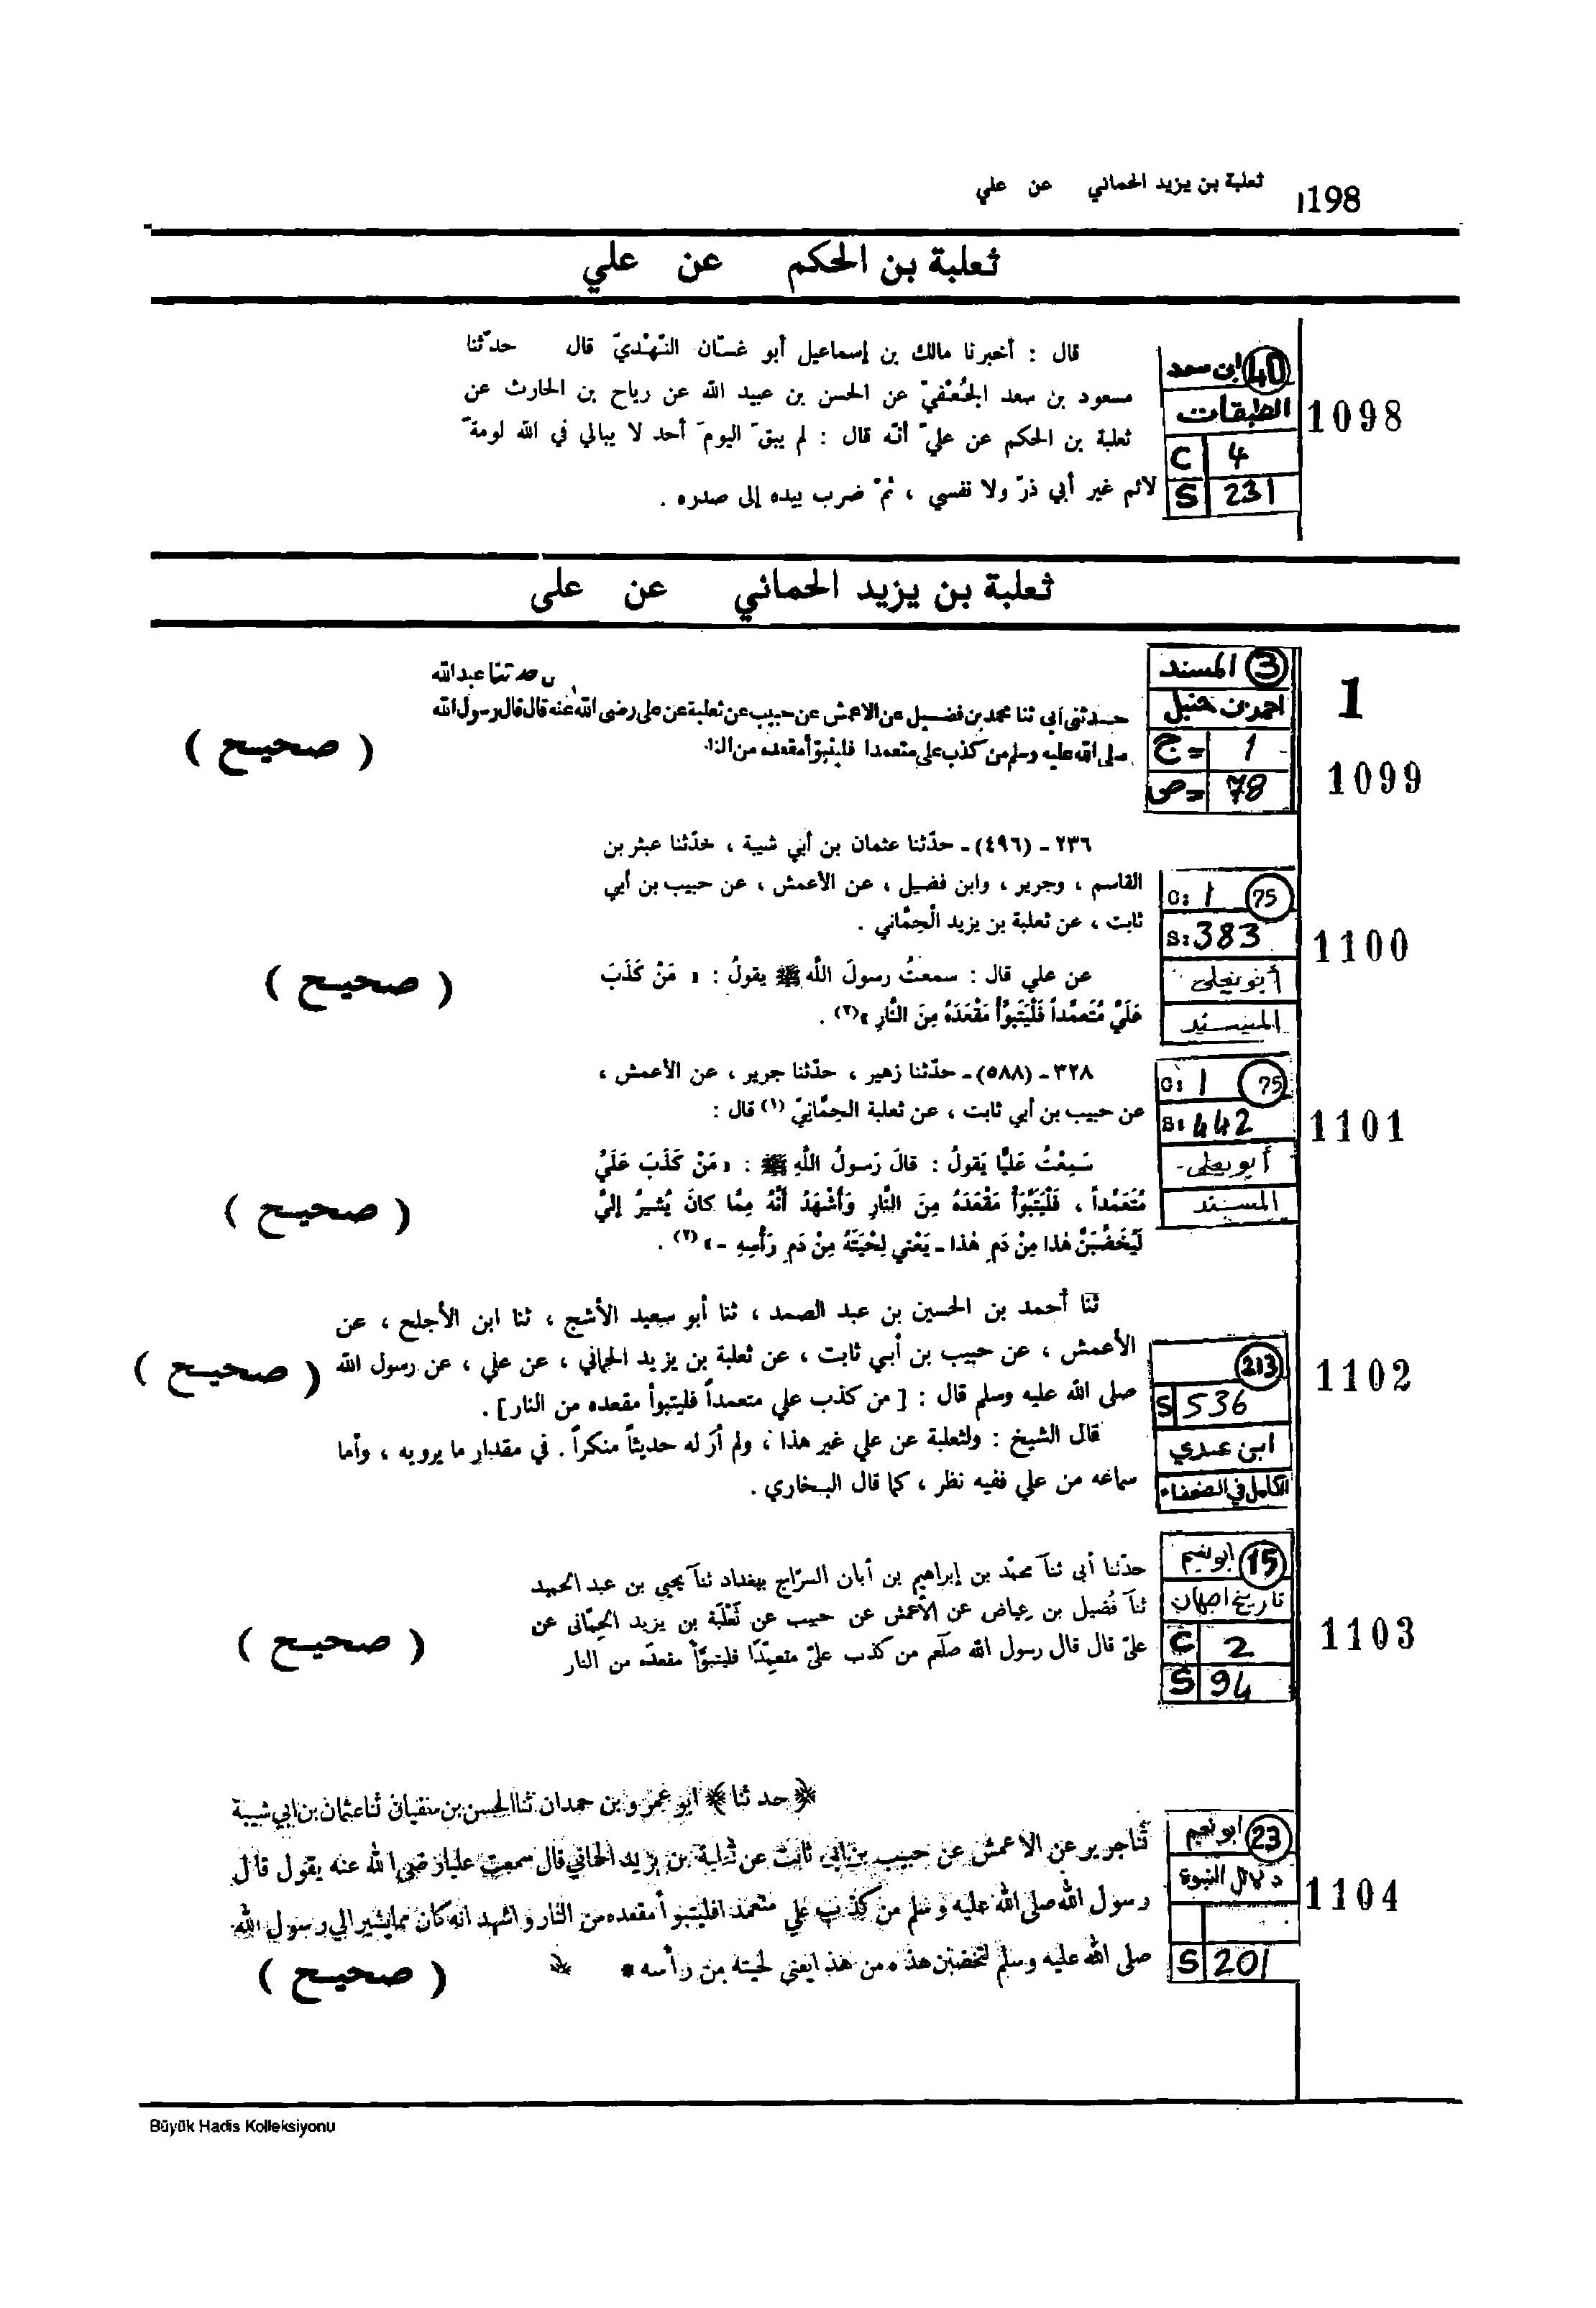 ثعلبة بن يزيد الحماني عن علي
1198
ثعلبة بن الحكم عن علي
40 ابن سعد
الطبقات
C 4
S 231
1098
قال : أخبرنا مالك بن إسماعيل أبو غسّان النّهْديّ قال حدّثنا
مسعود بن سعد الجُعْفيّ عن الحسن بن عبيد الله عن رياح بن الحارث عن
ثعلبة بن الحكم عن عليّ أنّه قال : لم يبقَ اليومَ أحد لا يبالي في الله لومةَ
لائم غير أبي ذرّ ولا نفسي ، ثمّ ضرب بيده إلى صدره .
ثعلبة بن يزيد الحماني عن على
3 المسند
احمد بن حنبل
ج= 1
ص= 78
1
1099
حدثنا عبدالله
حدثنى أبى ثنا محمد بن فضيل عن الاعمش عن حبيب عن ثعلبة عن على رضى الله عنه قال قال رسول الله
صلى الله عليه وسلم من كذب على متعمدا فليتبوأ مقعده من النار
( صحيح )
٢٣٦ - (٤٩٦) - حدّثنا عثمان بن أبي شيبة ، حدّثنا عبثر بن
القاسم ، وجرير ، وابن فضيل ، عن الأعمش ، عن حبيب بن أبي
ثابت ، عن ثعلبة بن يزيد الْحِمَّاني .
عن علي قال : سمعتُ رسولَ اللَّهِ ﷺ يقولُ : « مَنْ كَذَبَ
عَلَيَّ مُتَعمِّداً فَلْيَتَبَوَّأْ مَقْعَدَهُ مِنَ النَّارِ »(٢) .
C: 1 75
S: 383
أبو يعلى
المسند
1100
( صحيح )
٣٢٨ - (٥٨٨) - حدّثنا زهير ، حدّثنا جرير ، عن الأعمش ،
عن حبيب بن أبي ثابت ، عن ثعلبة الحِمَّانِيّ (١) قال :
سَمِعْتُ عَلِيَّا يَقولُ : قالَ رَسولُ اللَّهِ ﷺ : « مَنْ كَذَبَ عَلَيَّ
مُتَعَمِّداً ، فَلْيَتَبَوَّأْ مَقْعَدَهُ مِنَ النَّارِ وَأَشْهَدُ أَنَّهُ مِمَّا كانَ يُشيرُ إِليَّ
لَيُخَضَّبَنَّ هٰذا مِنْ دَمِ هٰذا - يَعْني لِحْيَتَهُ مِنْ دَمِ رَأْسِهِ - » (٢) .
C: 1 75
S: 442
أبو يعلى
المسند
1101
( صحيح )
ثنا أحمد بن الحسين بن عبد الصمد ، ثنا أبو سعيد الأشج ، ثنا ابن الأجلح ، عن
الأعمش ، عن حبيب بن أبي ثابت ، عن ثعلبة بن يزيد الحماني ، عن علي ، عن رسول الله
صلى الله عليه وسلم قال : [ من كذب علي متعمداً فليتبوأ مقعده من النار ] .
قال الشيخ : ولثعلبة عن علي غير هذا ، ولم أر له حديثاً منكراً . في مقدار ما يرويه ، وأما
سماعه من علي ففيه نظر ، كما قال البخاري .
213
S 536
ابن عدي
الكامل في الضعفاء
1102
( صحيح )
حدّثنا أبى ثنآ محمّد بن إبراهيم بن أبان السرّاج ببغداد ثنآ يحيى بن عبد الحميد
ثنآ فُضيل بن عياض عن الأعمش عن حبيب عن ثَعْلَبَة بن يزيد الحِمّانى عن
علىّ قال قال رسول الله صلّعم من كذب علىّ متعمّدًا فليتبوّأ مقعدَه من النار
15 ابو نعيم
تاريخ اصبهان
C 2
S 94
1103
( صحيح )
﴿ حدثنا ﴾ ابو عمرو بن حمدان ثنا الحسن بن سفيان ثنا عثمان بن ابي شيبة
ثنا جرير عن الاعمش عن حبيب بن ابى ثابت عن ثعلبة بن يزيد الحماني قال سمعت عليا رضى الله عنه يقول قال
رسول الله صلى الله عليه وسلم من كذب علي متعمدا فليتبوأ مقعده من النار واشهد انه كان مما يشير الي رسول الله
صلى الله عليه وسلم لتخضبن هذه من هذا يعني لحيته من رأسه *
23 ابو نعيم
دلائل النبوة
S 201
1104
( صحيح )
Büyük Hadis Kolleksiyonu